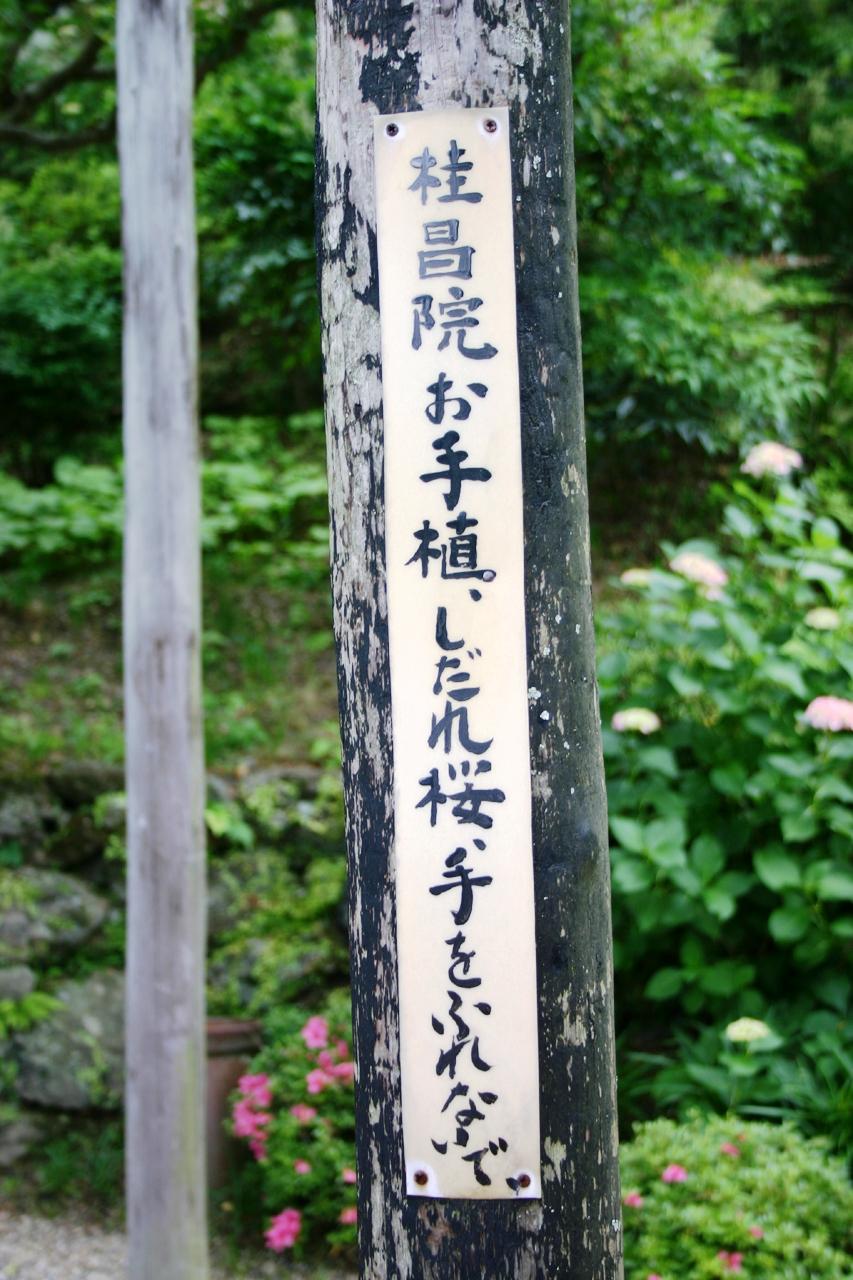 桂昌院お手植、しだれ桜、手をふれないで、